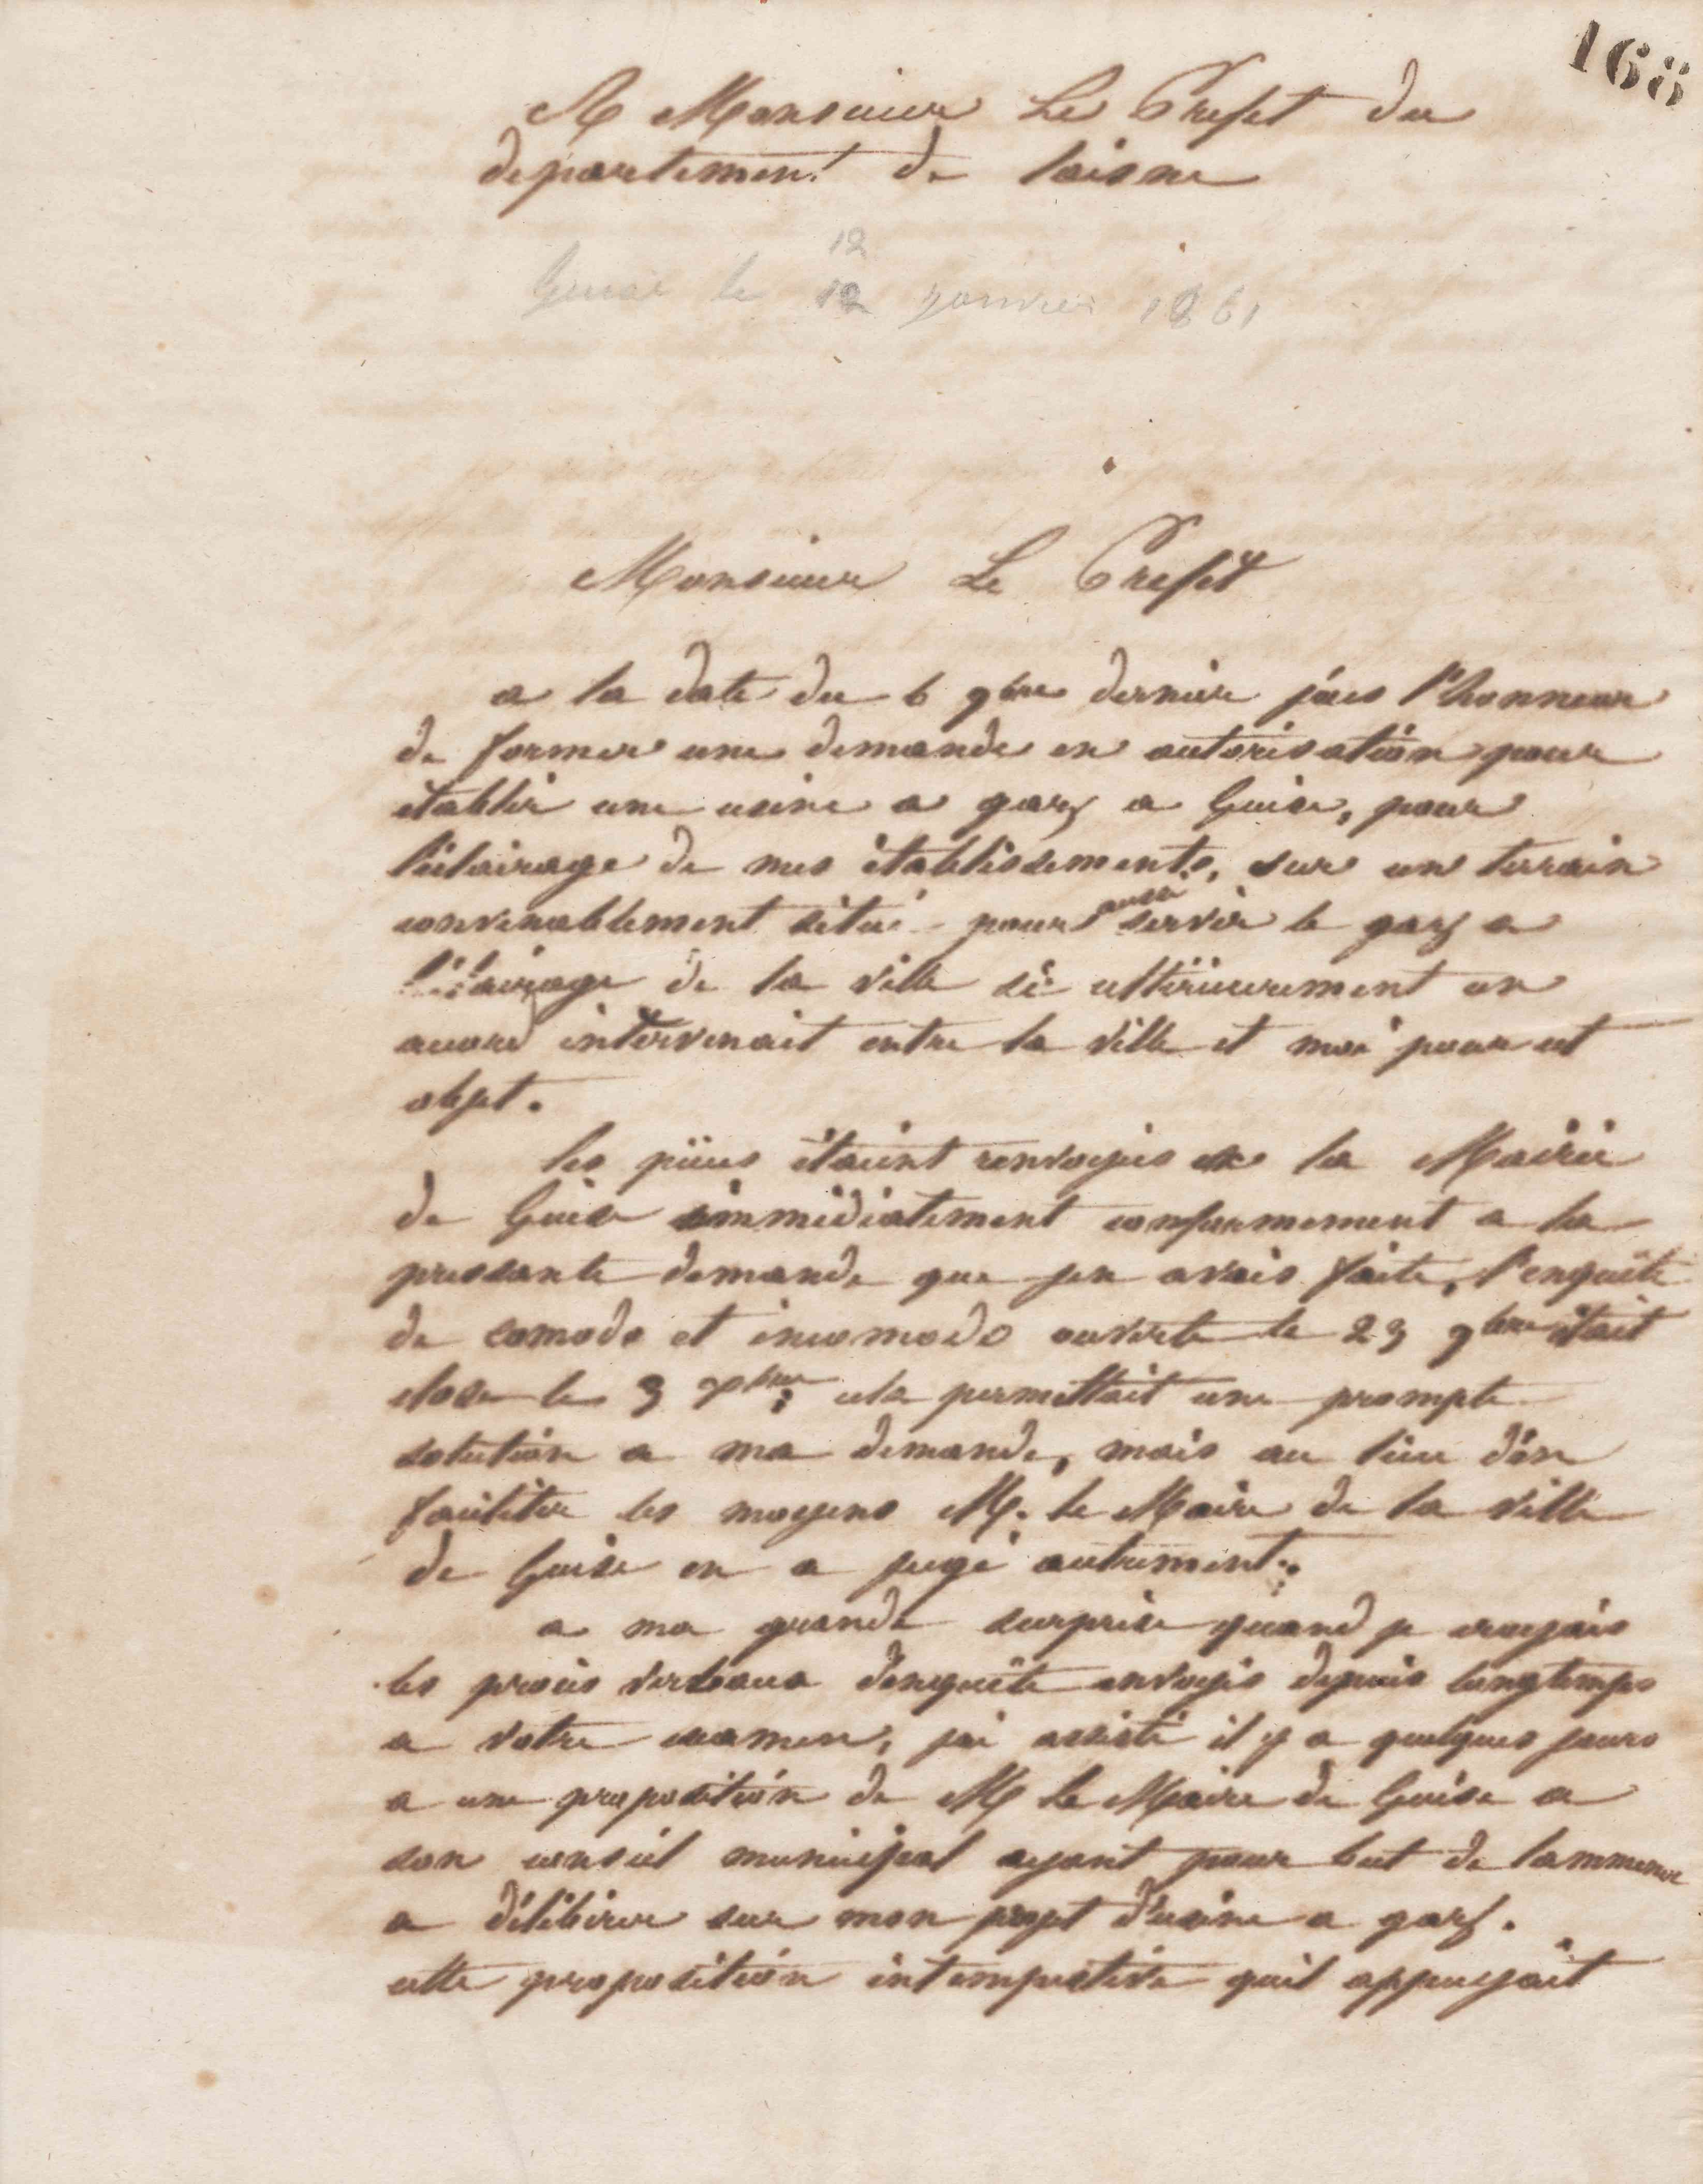 168
A Monsieur Le Prefet du
departement de laisne
12
Guise le 12 janvier 1861
Monsieur Le Prefet
a la date du 6 9bre dernier j'eus l'honneur
de former une demande en autorisation pour
établir une usine a gaz a Guise, pour
l'éclairage de mes établissements, sur un terrain
convenablement situé pour aussi servir le gaz a
l'éclairage de la ville si ultérieurement un
accord intervenait entre la ville et moi pour cet
objet.
les pièces étaient renvoyées a la Mairie
de Guise immédiatement conformement a la
pressante demande que jen avais faite, l'enquête
de comodo et incomodo ouverte le 23 9bre était
close le 3 xbre; cela permettait une prompte
solution a ma demande, mais au lieu d'en
faciliter les moyens M. le Maire de la ville
de Guise en a jugé autrement.
a ma grande surprise quand je croyais
les procès verbaux d'enquête envoyés depuis longtemps
a votre examen, jai assisté il y a quelques jours
a une proposition de M le Maire de Guise a
son conseil municipal ayant pour but de lammener
a délibérer sur mon projet d'usine a gaz.
cette proposition intempestive quil appuyait